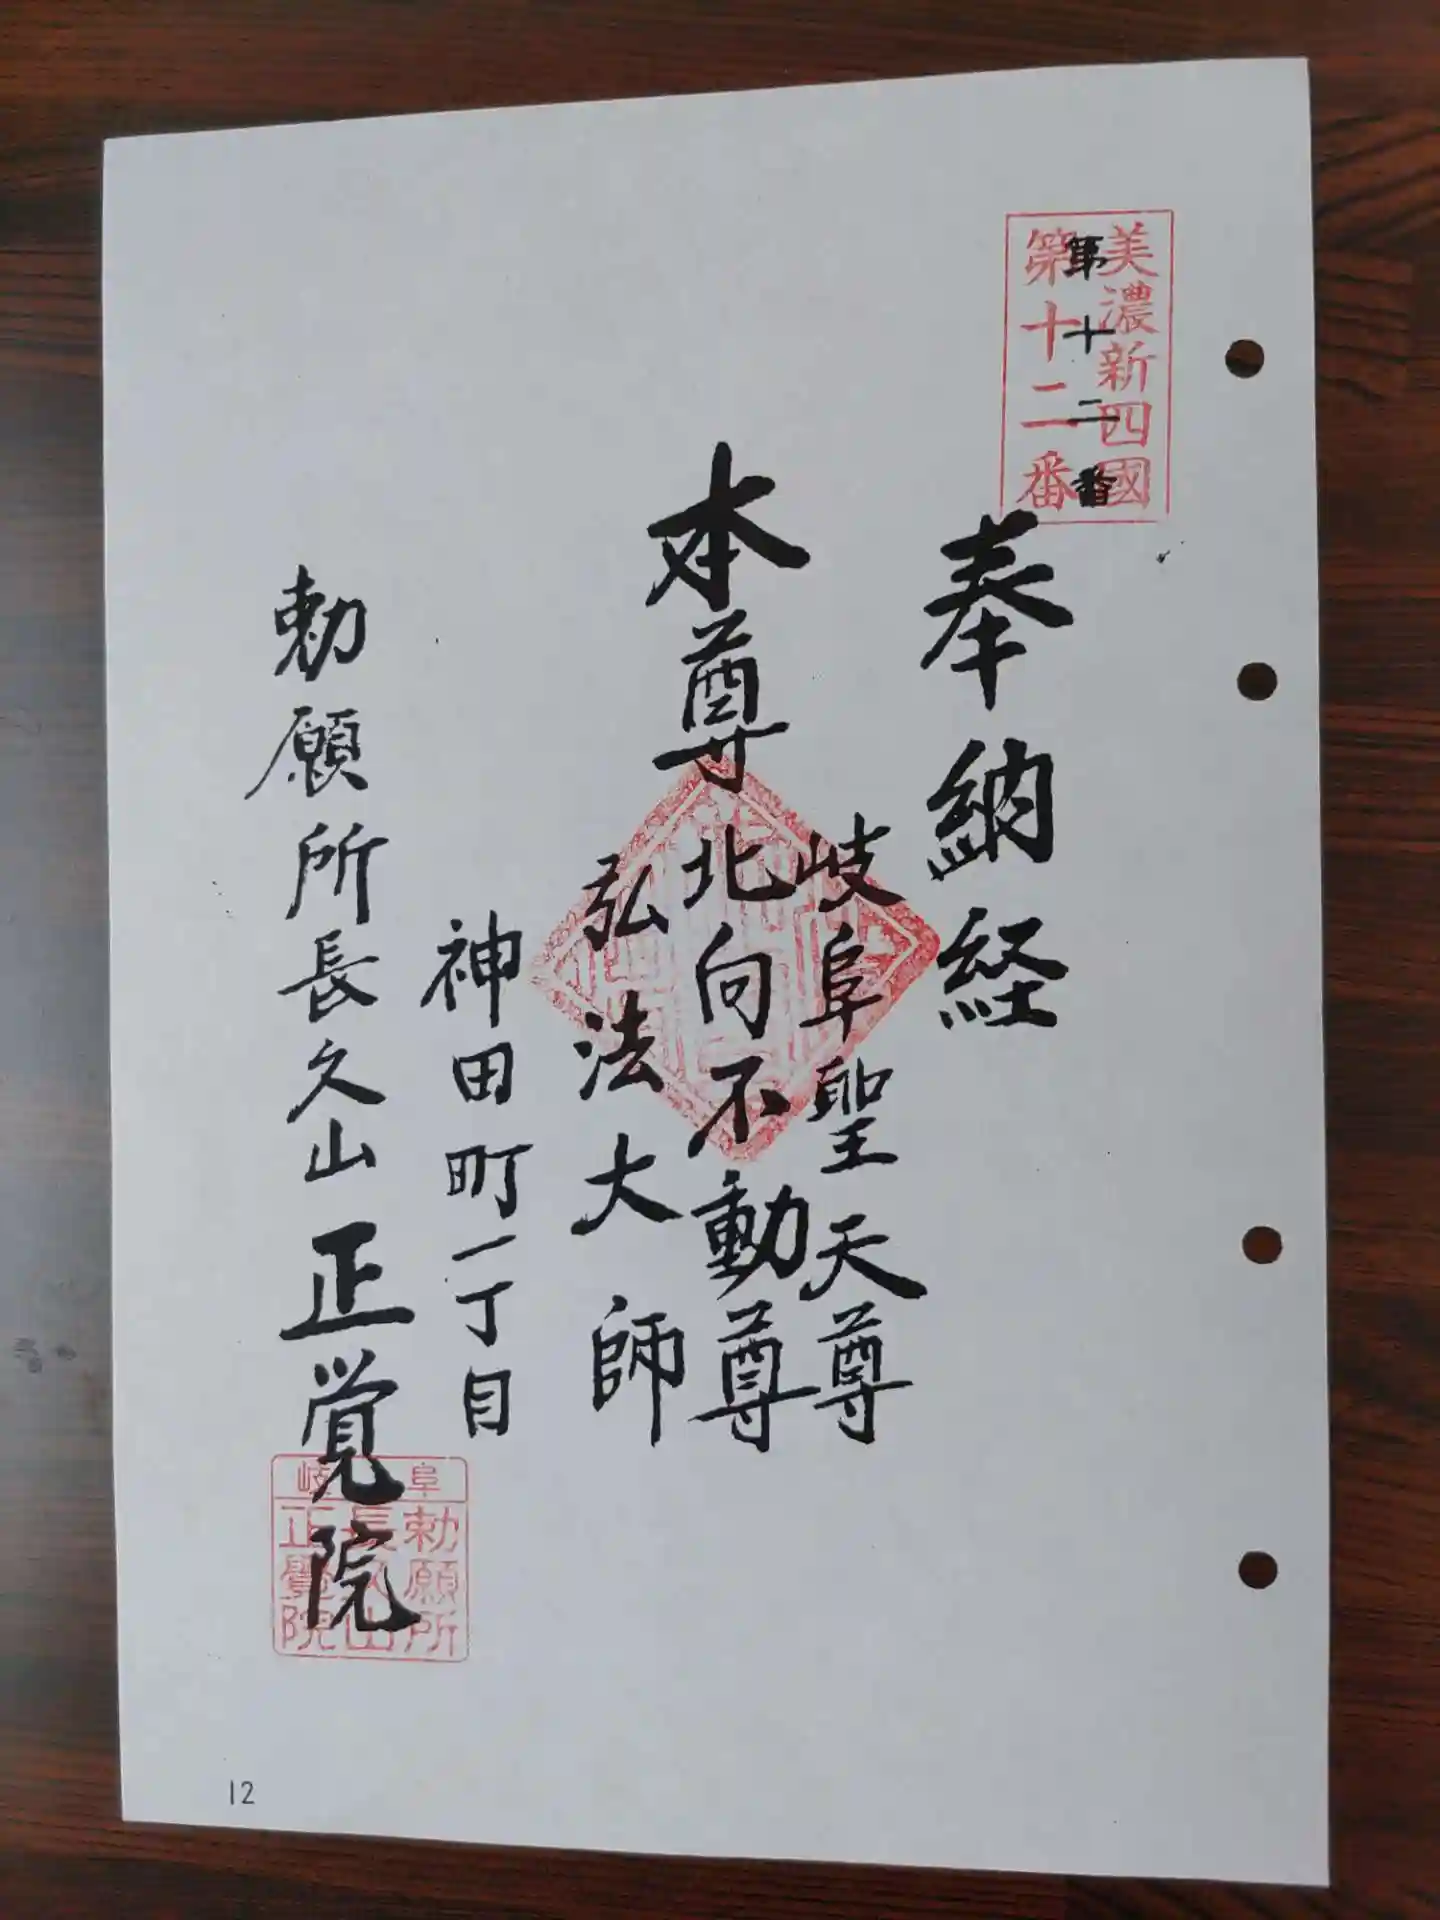 美濃新四國
第十二番
第十二番
奉納経
本尊
岐阜聖天尊
北向不動尊
弘法大師
神田町一丁目
勅願所長久山正覚院
岐阜
勅願所
長久山
正覺院
12